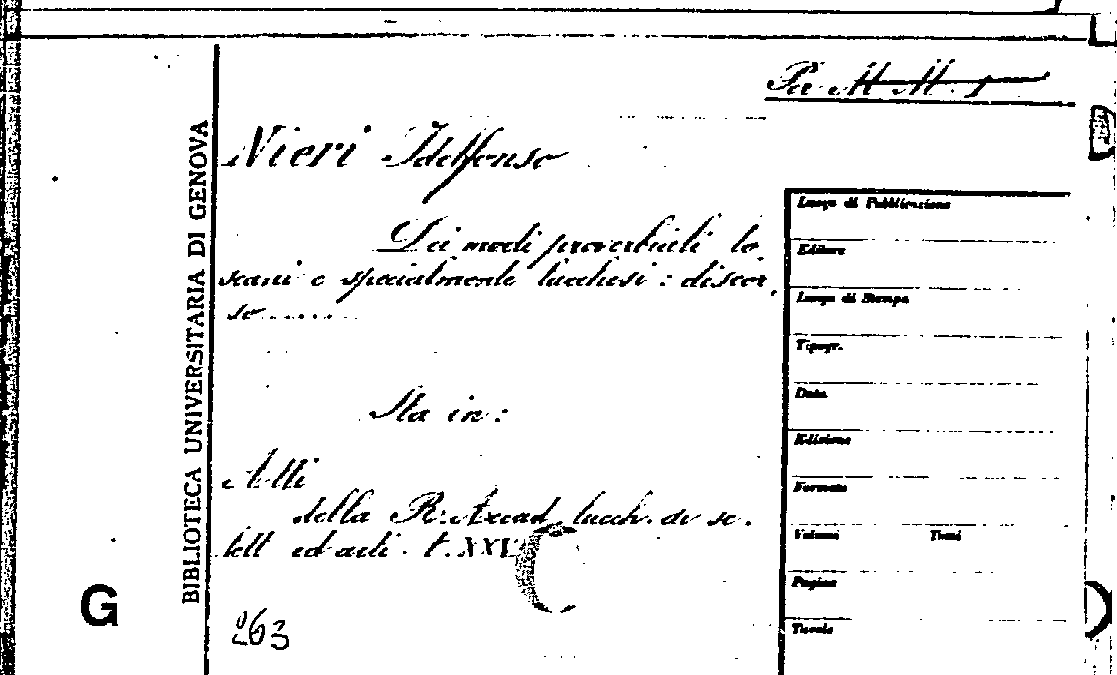 Per M. M. 1
BIBLIOTECA UNIVERSITARIA DI GENOVA
Nieri Idelfonso
Dei modi proverbiali to
scani e specialmente lucchesi: discor,
so......
Sta in:
Atti
della R. Accad. lucch. di sc.
lett ed arti. t. XXV
263
G
C
Luogo di Pubblicazione
Editore
Luogo di Stampa
Tipogr.
Data
Edizione
Formato
Volumi Tomi
Pagine
Tavole